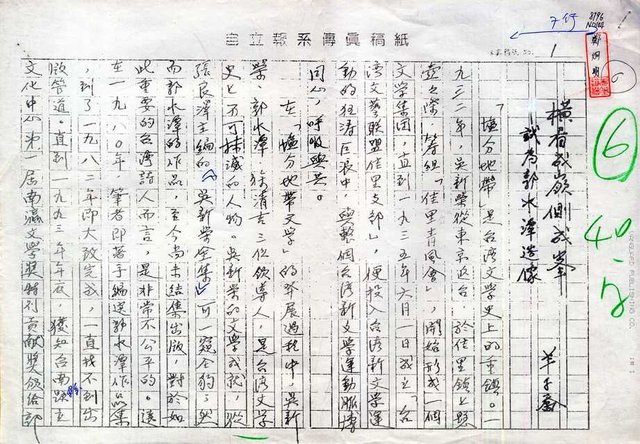 自立報系傳真稿紙
1
橫看成嶺側成峯
試為郭水潭造像
羊子喬
「鹽分地帶」是台灣文學史上的重鎮。一
九三二年，吳新榮從東京返台，於佳里鎮上懸
壺之際，籌組「佳里青風會」，開始形成一個
文學集團，直到一九三五年六月一日成立「台
灣文藝聯盟佳里支部」，便投入台灣新文學運
動的狂濤巨浪中，與整個台灣新文學運動脈博
同心，呼吸與共。
在「鹽分地帶文學」的發展過程中，吳新
榮、郭水潭、徐清吉三位領導人，是台灣文學
史上不可抹滅的人物。吳新榮的文學成就，從
張良澤主編的《吳新榮全集》可一窺全豹；然
而郭水潭的作品，至今尚未結集出版，對於如
此重要的台灣詩人而言，是非常不公平的。遠
在一九八○年，筆者即著手編選郭水潭作品集
，到了一九八二年即大致完成，一直找不到出
版管道。直到一九九三年年底，獲知台南縣立
文化中心第一屆南瀛文學獎特別貢獻獎頒給郭
鄭烱明
6
40